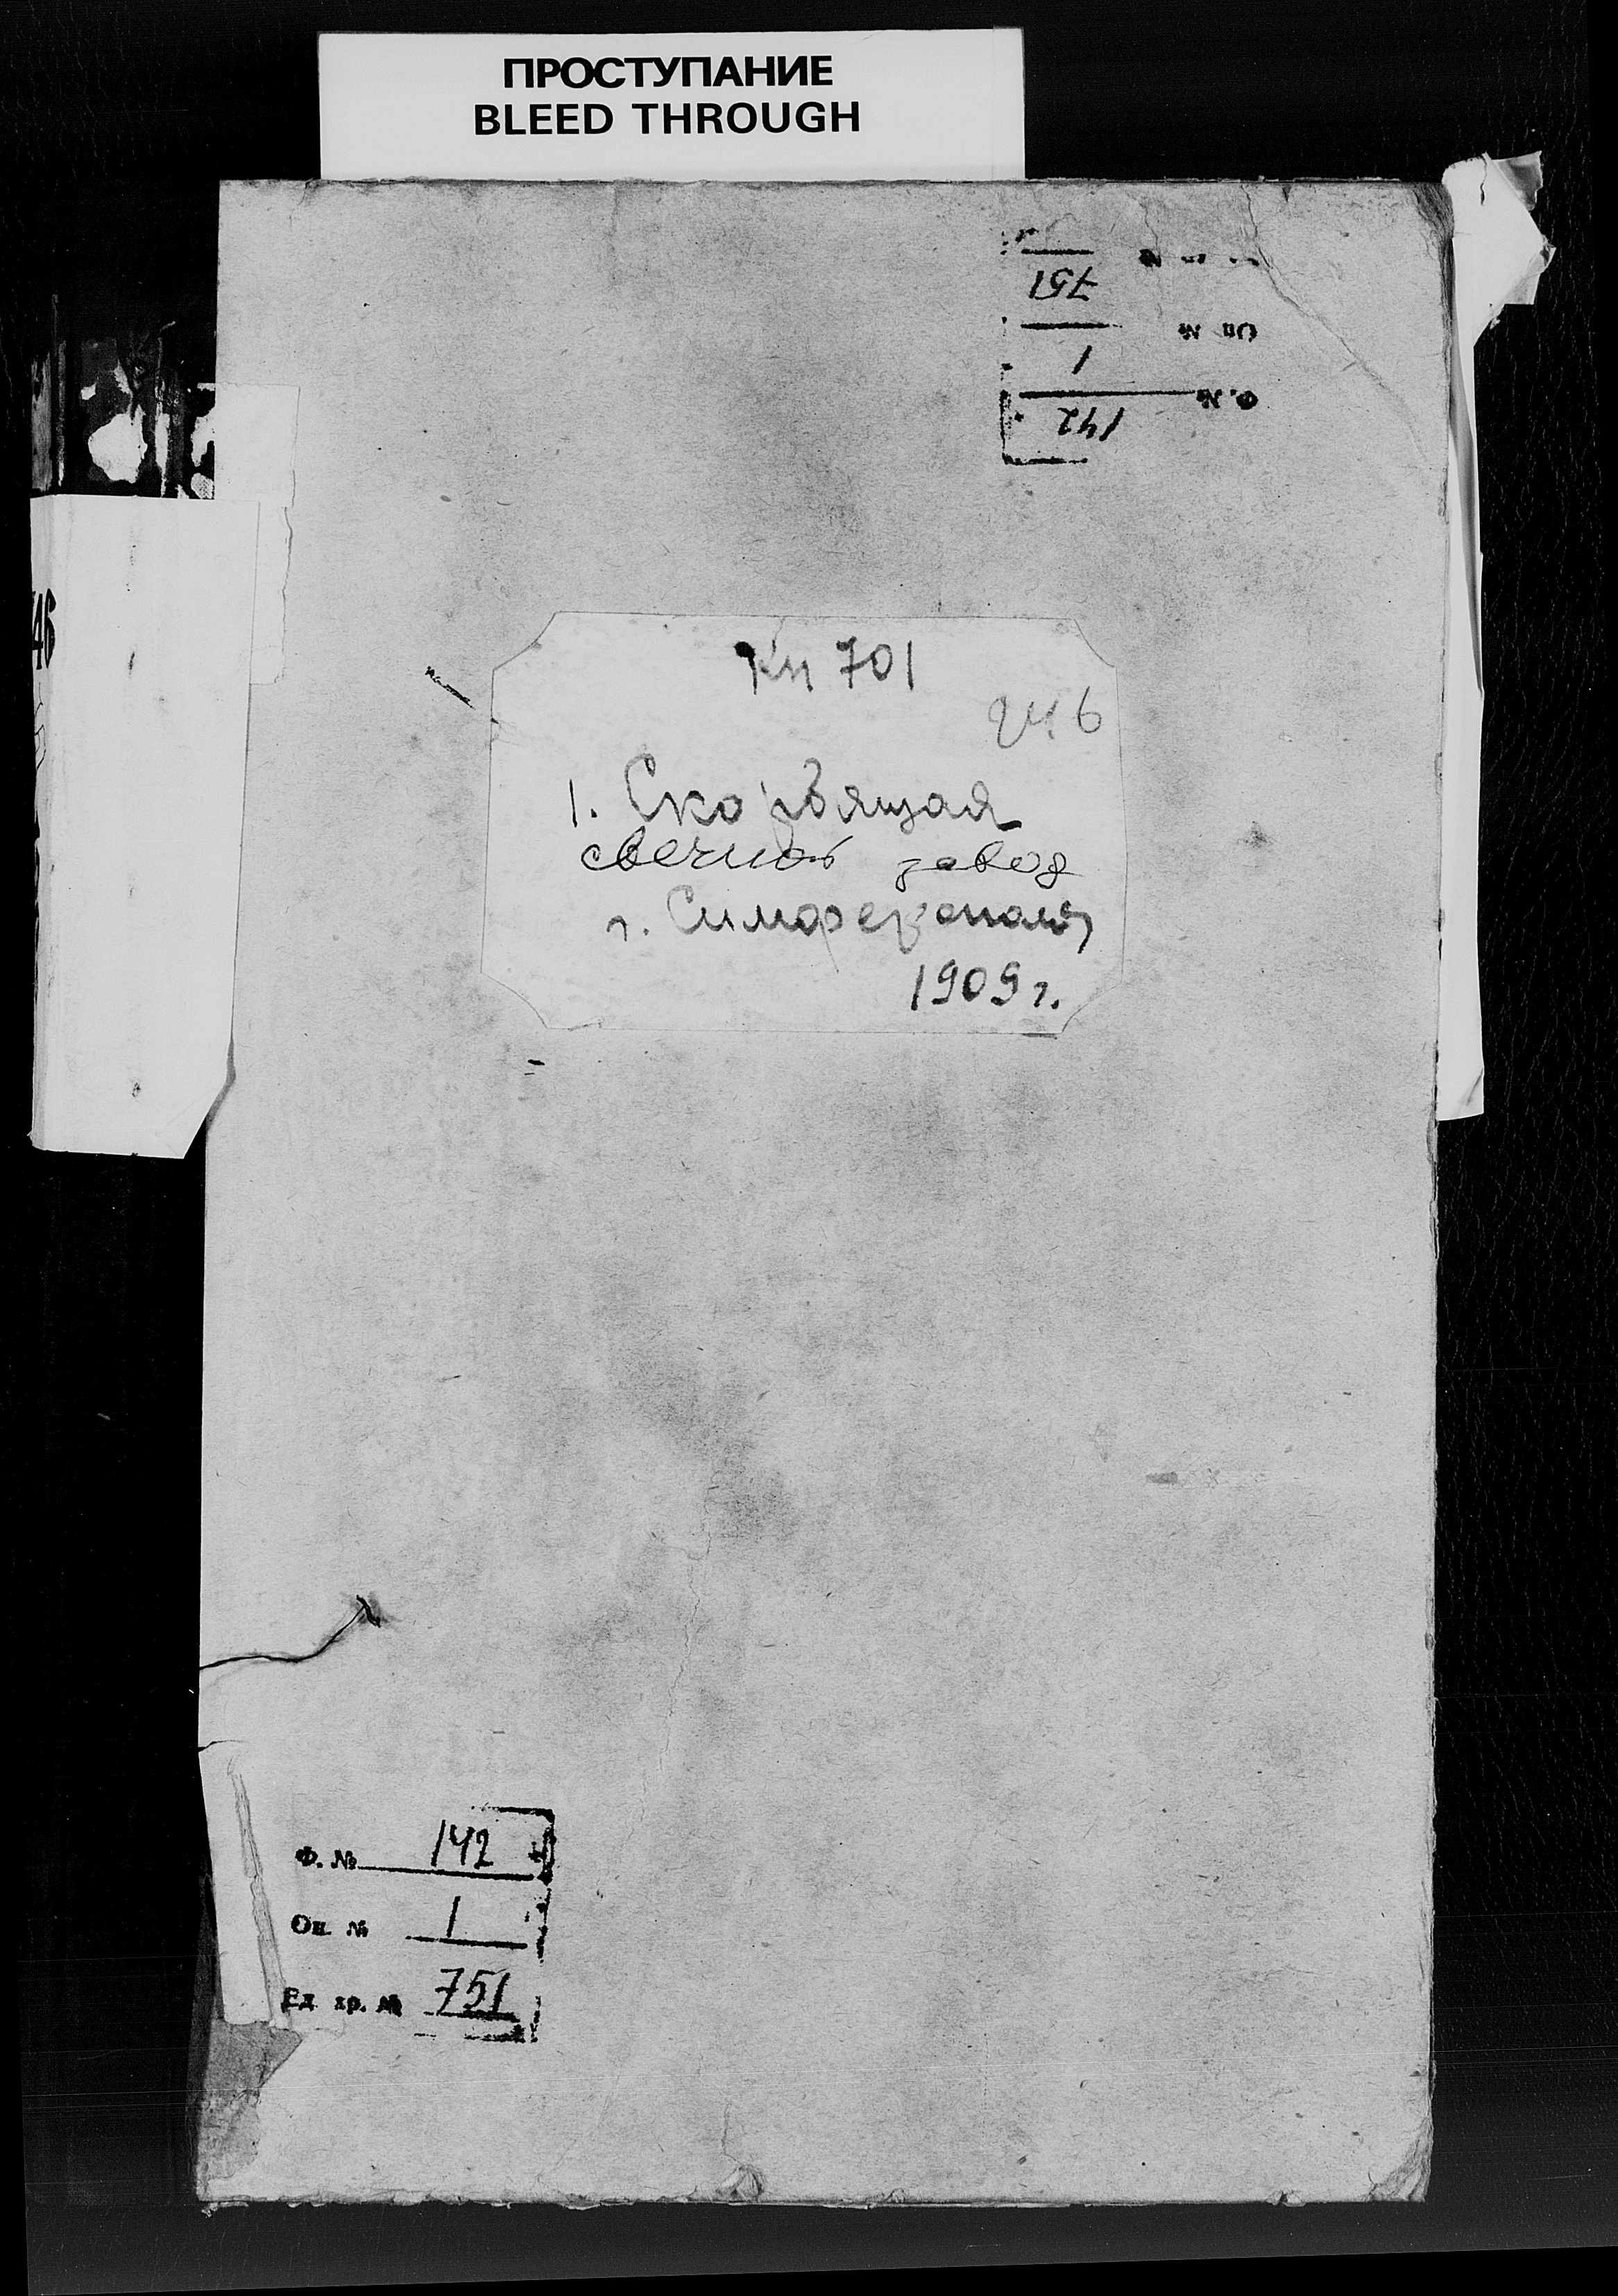 ПРОСТУПАНИЕ
BLEED THROUGH
751
Оп №
1
Ф. №
142
46
Кн 701
1. Скорбящая
свечной завод
г. Симферополь
1909 г.
Ф. № 142
Оп № 1
Ед хр. № 751